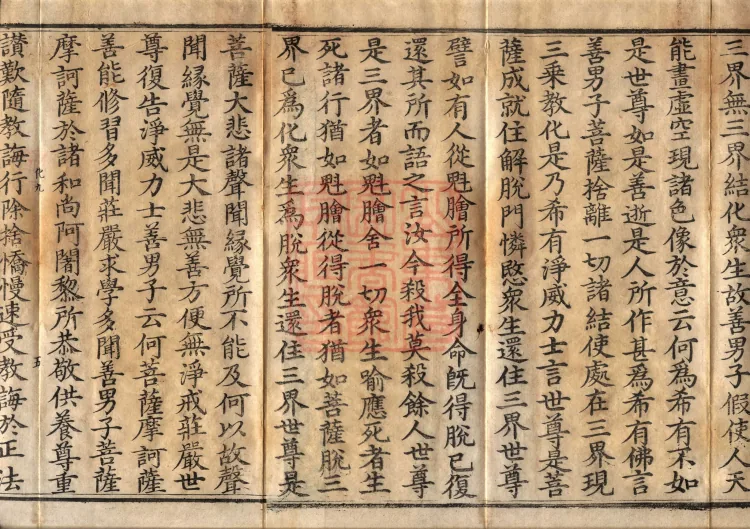 三界無三界結化衆生故善男子假使人天
能畫虛空現諸色像於意云何為希有不如
是世尊如是善逝是人所作甚為希有佛言
善男子菩薩捨離一切諸結使處在三界現
三乘教化是乃希有淨威力士言世尊是菩
薩成就住解脫門憐愍衆生還住三界世尊
譬如有人從魁膾所得全身命旣得脫已復
還其所而語之言汝今殺我莫殺餘人世尊
是三界者如魁膾舍一切衆生喻應死者生
死諸行猶如魁膾從得脫者猶如菩薩脫三
界已為化衆生為脫衆生還住三界世尊是
菩薩大悲諸聲聞緣覺所不能及何以故聲
聞緣覺無是大悲無善方便無淨戒莊嚴世
尊復告淨威力士善男子云何菩薩摩訶薩
善能修習多聞莊嚴求學多聞善男子菩薩
摩訶薩於諸和尚阿闍黎所恭敬供養尊重
化九
五
讃歎隨教誨行除捨憍慢速受教誨於正法